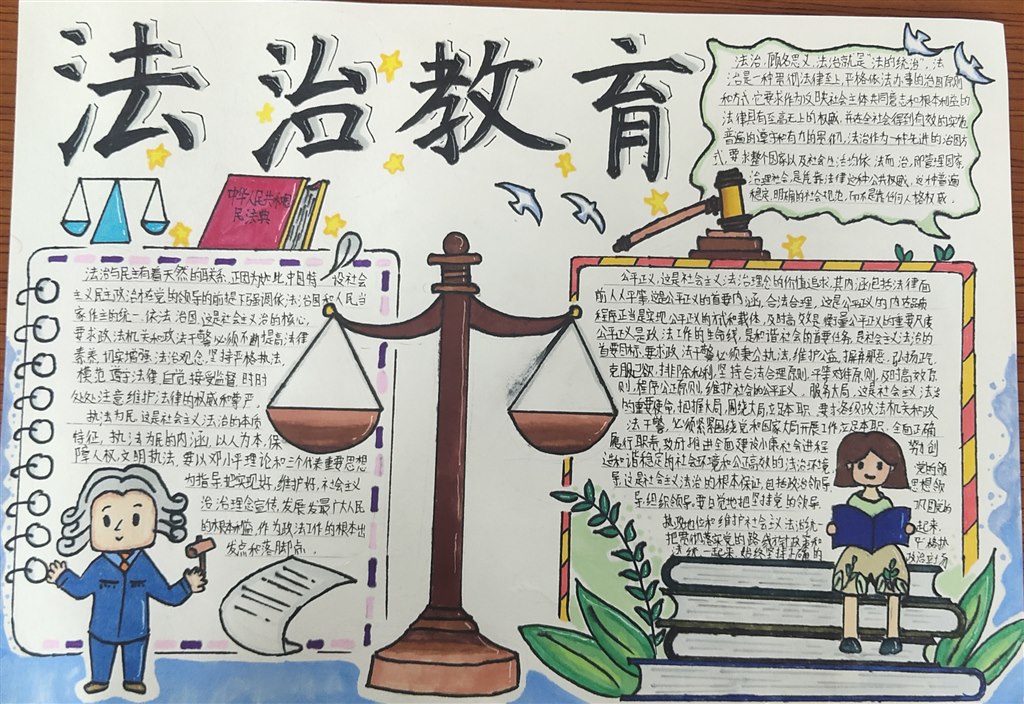 法治教育
法治,顾名思义,法治就是"法的统治",法
治是一种贯彻法律至上,严格依法办事的治国原则
和方式,它要求作为反映社会主体共同意志和根本利益的
法律具有至高无上的权威,并在全社会得到有效的实施
普遍的遵守和有力的贯彻,法治作为一种先进的治国方
式,要求整个国家以及社会生活均依法而治,即管理国家
治理社会,是凭靠法律这种公共权威,这种普遍
稳定,明确的社会规范,而不是靠任何人格权威.
中华人民共和国
民法典
法治与民主有着天然的联系,正因为如此,中国特 设社会
主义民主政治在党的领导的前提下强调依法治国和人民当
家作主的统一.依法治国,这是社会主义法治的核心,
要求政法机关和政法干警必须不断提高法律
素养,切实增强法治观念,坚持严格执法,
模范遵守法律自觉接受监督,时时
处处注意维护法律的权威和尊严
执法为民,这是社会主义法治的本质
特征,执法为民的内涵,以人为本,保
障人权,文明执法,要以邓小平理论和三个代表重要思想
为指导,把实现好,维护好,社会主义
法治理念宣传,发展发最广大人民
的根本利益,作为政法工作的根本出
发点和落脚点.
公平正义,这是社会主义法治理念的价值追求,其内涵包括法律面
前人人平等,这是公平正义的首要内涵,合法合理,这是公平正义的内在品质
程序正当是实现公平正义的方式和载体,及时高效是衡量公平正义的重要尺度
公平正义是政法工作的生命线,是和谐社会的首要任务,是社会主义法治的
首要目标,要求政法干警必须秉公执法,维护公益,摒弃邪恶,弘扬正气
克服己欲,排除私利,坚持合法合理原则,平等对待原则,及时高效原
则,程序公正原则,维护社会的公平正义,服务大局,这是社会主义法治
的重要使命,把握大局,围绕大局,立足本职,要求各级政法机关和政
法干警,必须紧紧围绕党和国家大局开展工作,立足本职,全面正确
履行职责,致力推进全面建设小康社会进程 努力创
造和谐稳定的社会环境和公正高效的法治环境 党的领
导,这是社会主义法治的根本保证,包括政治领导 思想领
导,组织领导,要自觉地把坚持党的领导
执政地位和维护社会主义法治统一 起来,
把贯彻落实党的路线方针政策和 严格执
法统一起来,始终坚持正确的 政治立场